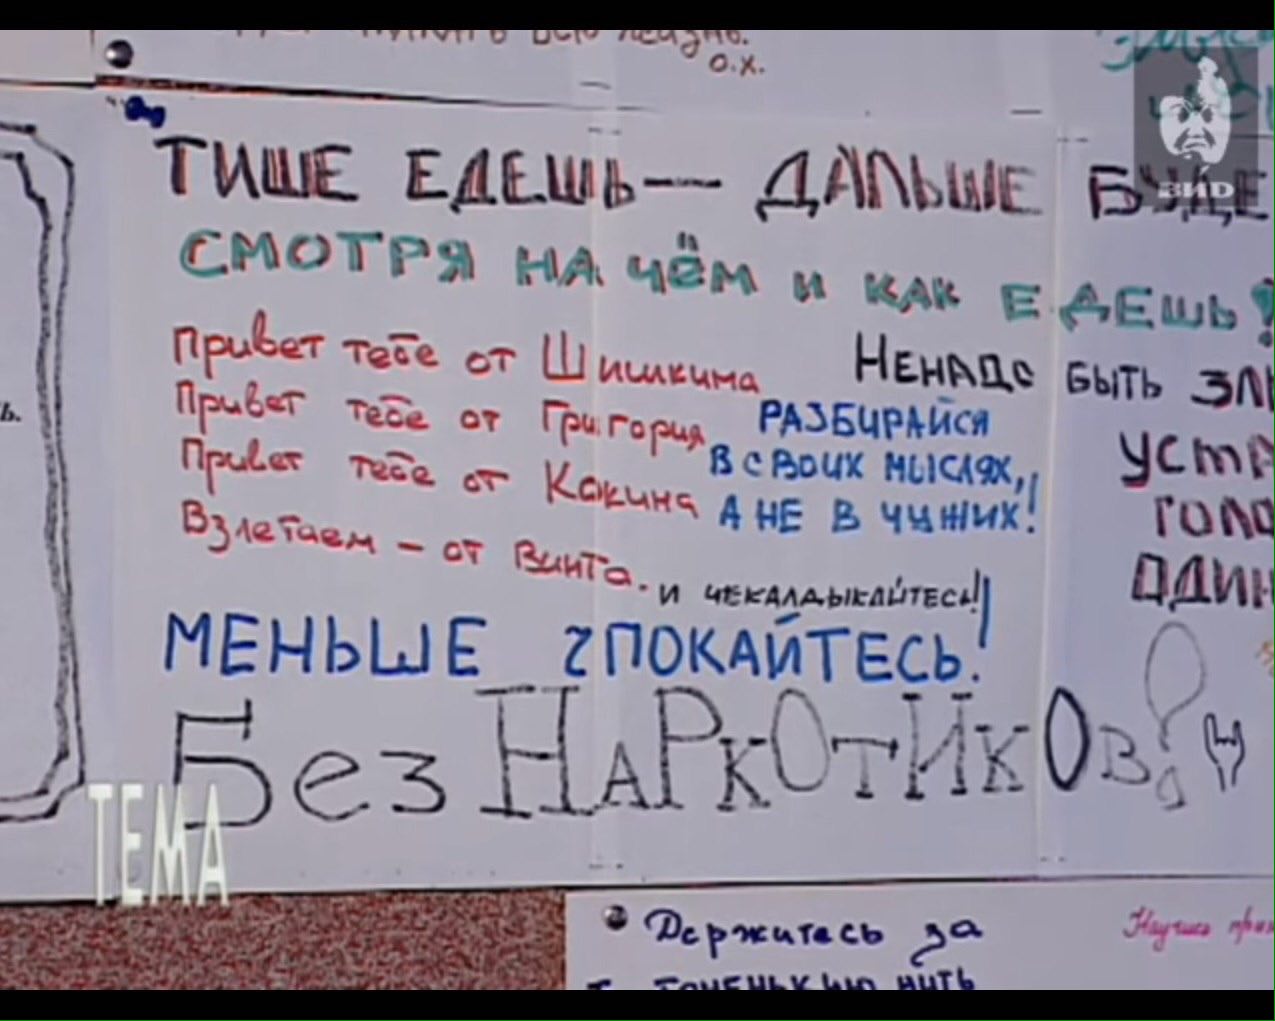 всю жизнь.
О.Х.
ТИШЕ ЕДЕШЬ — ДАЛЬШЕ БУДЕ
СМОТРЯ НА ЧЁМ И КАК ЕДЕШЬ?
Привет тебе от Шишкина
Привет тебе от Григория
Привет тебе от Кокина
Взлетаем - от Винта.
НЕНАДО БЫТЬ ЗЛ
РАЗБИРАЙСЯ
В СВОИХ МЫСЛЯХ,
А НЕ В ЧУЖИХ!
УСТА
ГОЛО
ОДИН
И ЧЕКАЛДЫКАЙТЕСЬ!
МЕНЬШЕ ЧПОКАЙТЕСЬ!
Без НАРКОТИКОВ!
ь.
ВИD
ТЕМА
Держитесь за
тоненькую нить
Научись